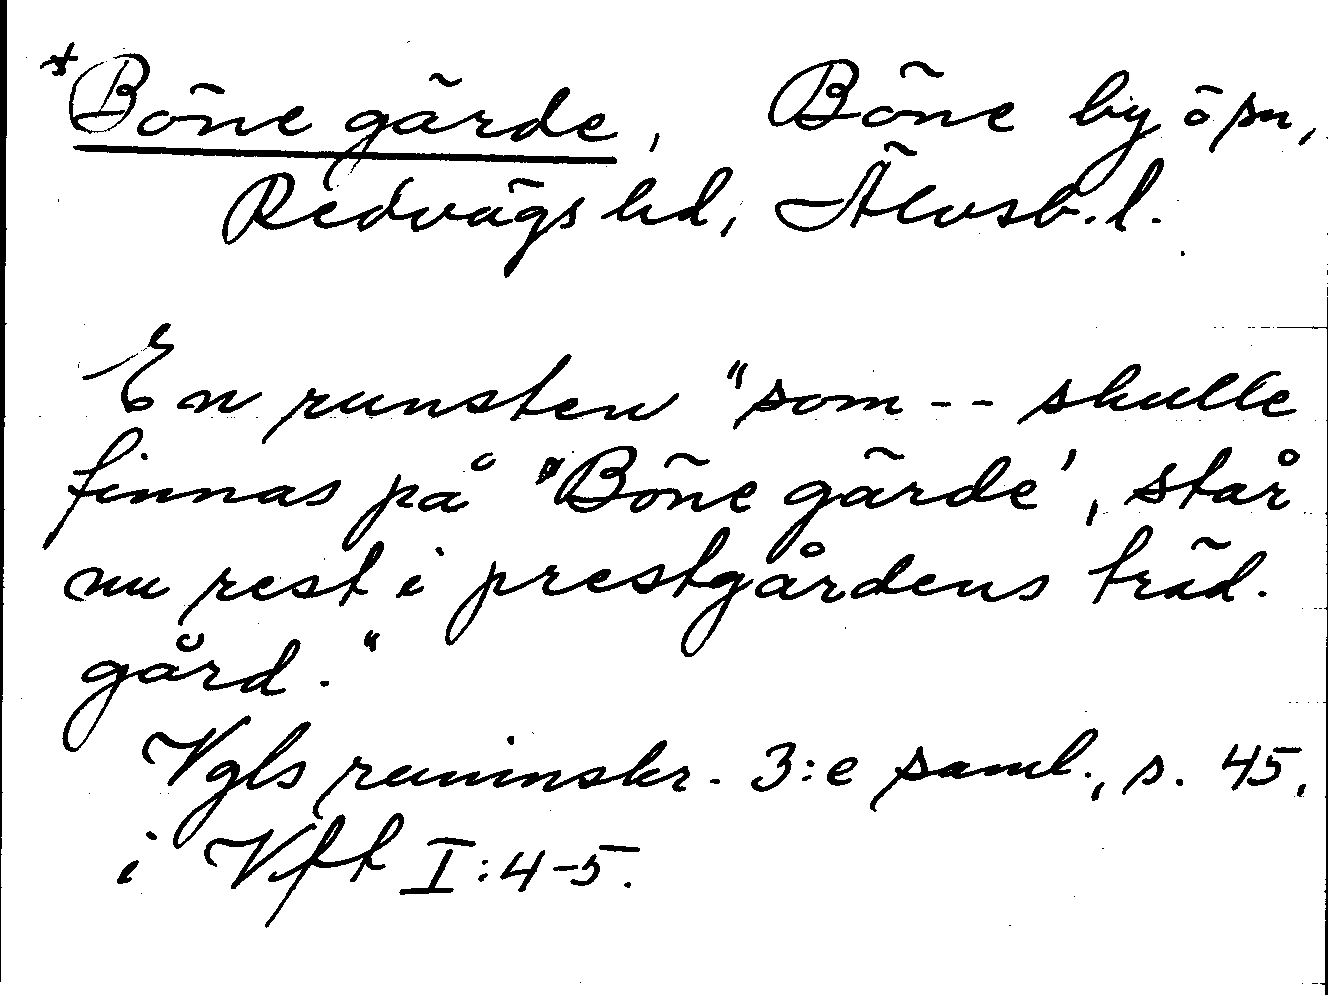 *Böne gärde, Böne by o sn,
Redvägs hd, Älvsb. l.
En runsten "som -- skulle
finnas på "Böne gärde', står
nu rest i prestgårdens träd-
gård."
Vgls runinskr. 3:e saml., s. 45,
i Vft I:4-5.